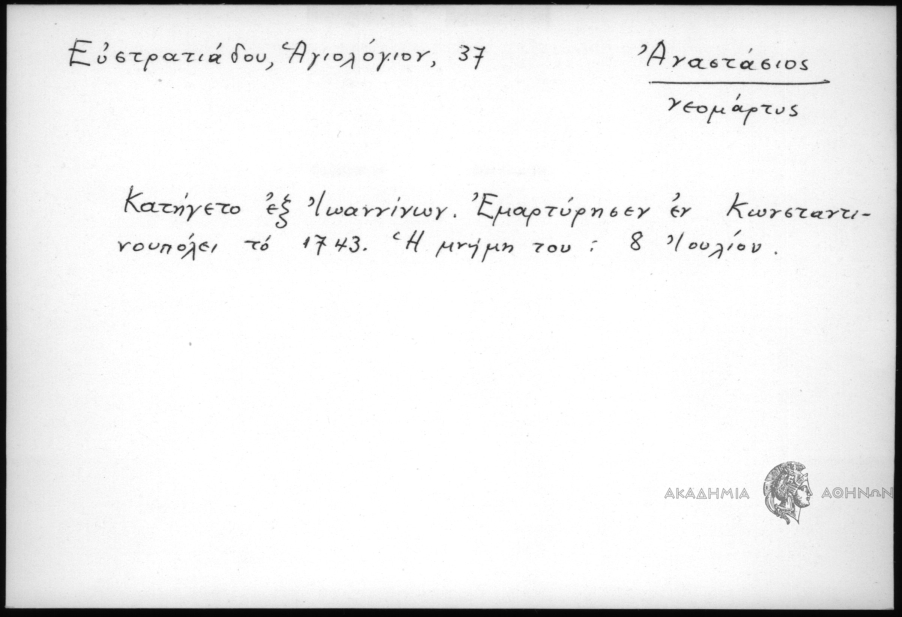 Εὐστρατιάδου, Ἁγιολόγιον, 37
Ἀναστάσιος
νεομάρτυς
Κατήγετο ἐξ Ἰωαννίνων. Ἐμαρτύρησεν ἐν Κωνσταντι-
νουπόλει τό 1743. Ἡ μνήμη του : 8 Ἰουλίου.
ΑΚΑΔΗΜΙΑ ΑΘΗΝΩΝ